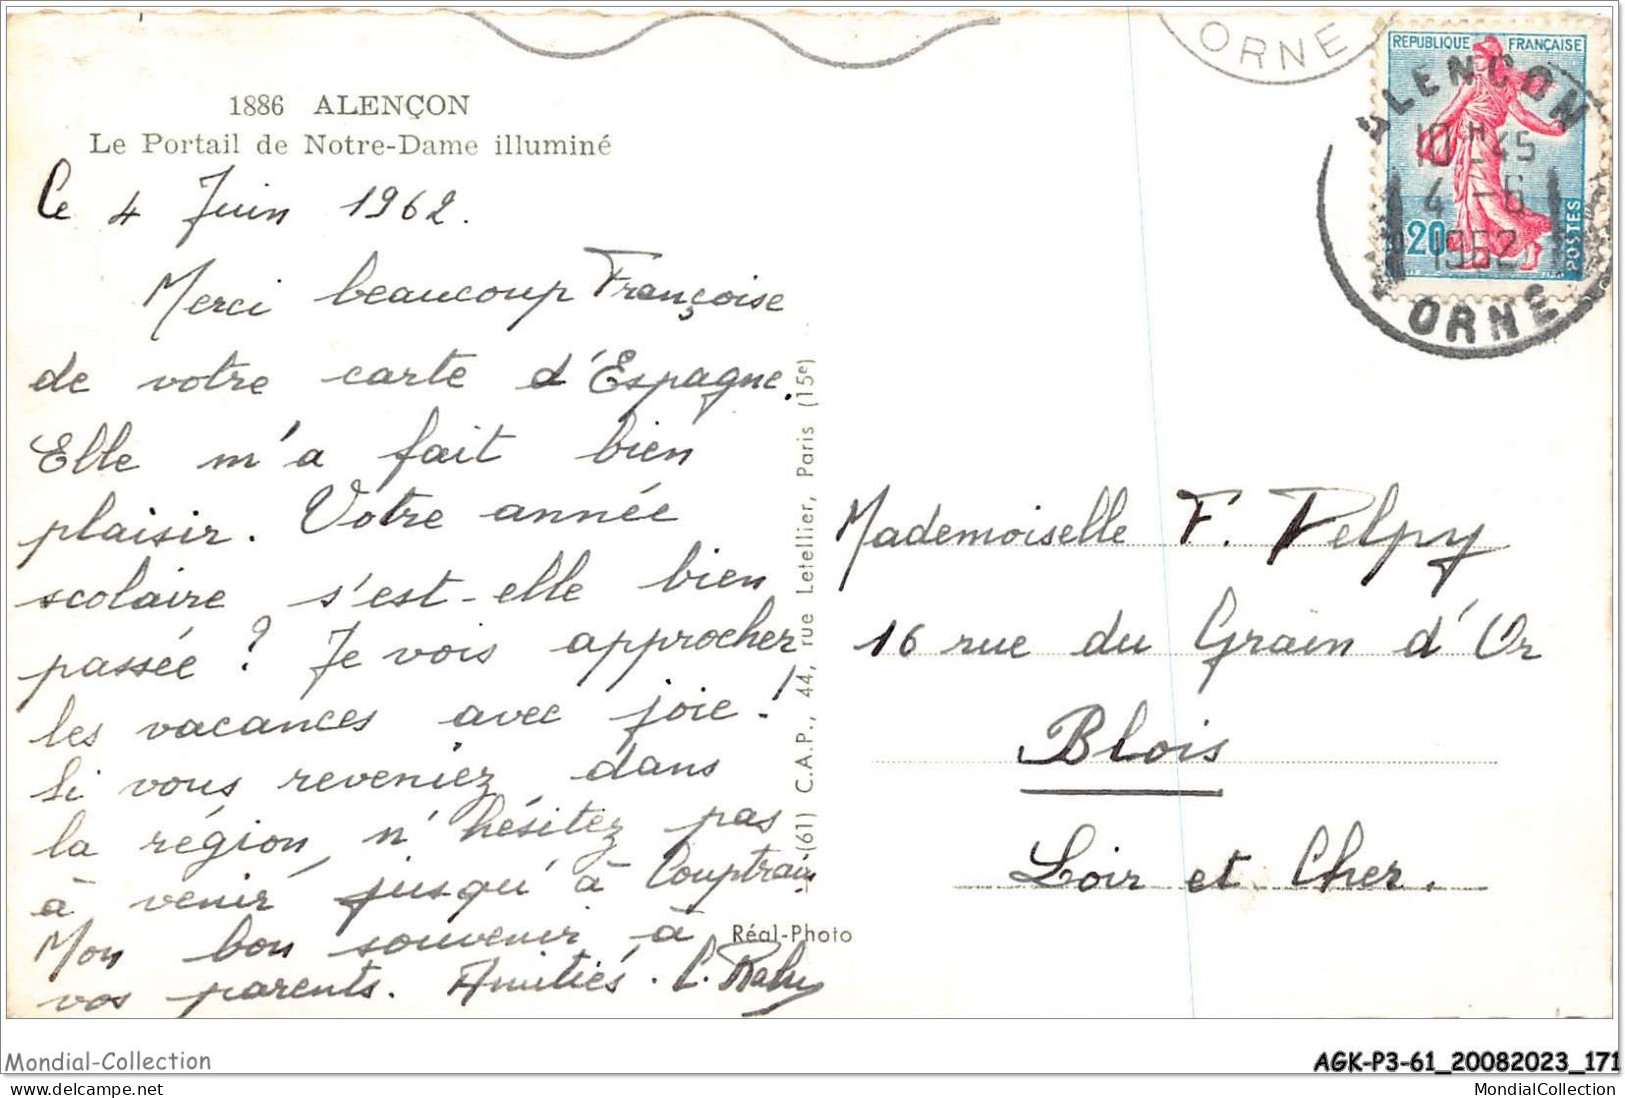 1886 ALENÇON
Le Portail de Notre-Dame illuminé
Ce 4 Juin 1962.
Merci beaucoup Françoise
de votre carte d'Espagne.
Elle m'a fait bien
plaisir. Votre année
scolaire s'est-elle bien
passée ? Je vois approcher
les vacances avec joie !
Si vous reveniez dans
la région, n'hésitez pas
à venir jusqu'à Couptrain
Mon bon souvenir à
vos parents. Amitiés.
(61) C.A.P., 44, rue Letellier, Paris (15e)
Réal-Photo
ORNE
REPUBLIQUE FRANÇAISE
0,20
POSTES
ALENCON
10H45
4 - 6
1962
ORNE
Mademoiselle F. Delpy
16 rue du Grain d'Or
Blois
Loir et Cher.
Mondial-Collection
AGK-P3-61_20082023_171
MondialCollection